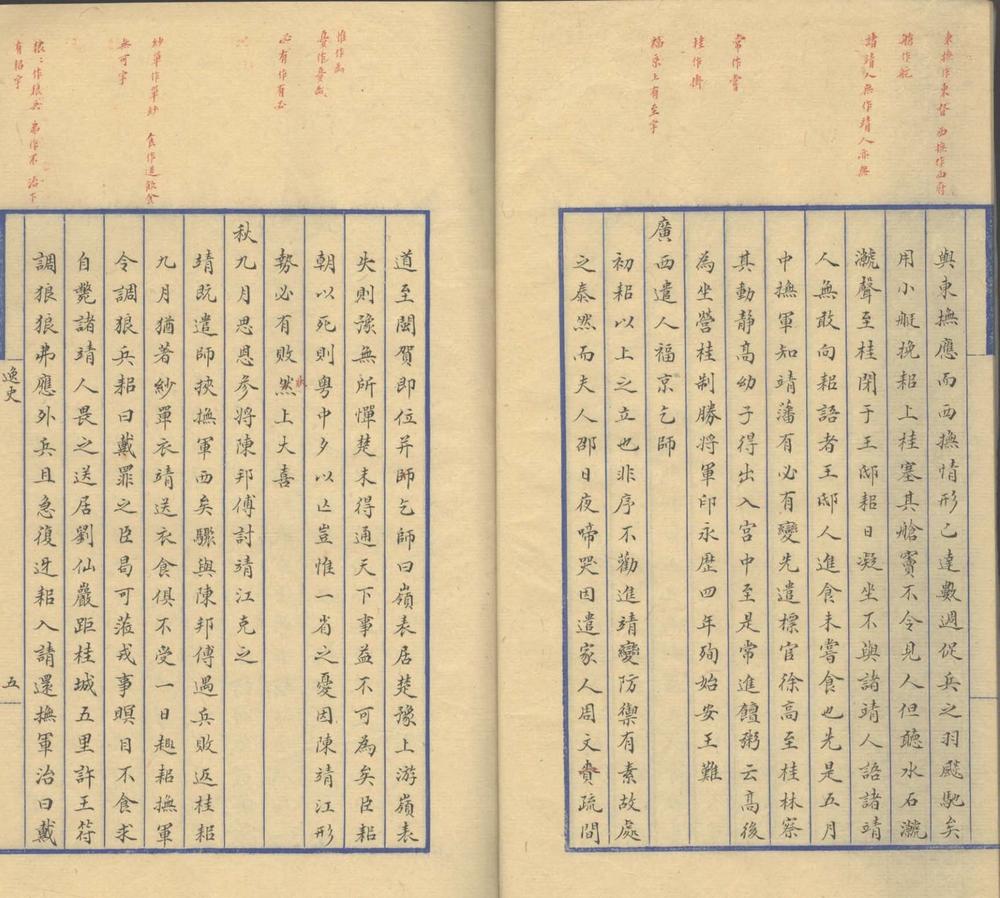 東撫作東督 西撫作西府
艙作舵
諸靖人無作靖人亦無
常作嘗
桂作掛
福京上有至字
與東撫應而西撫情形已達數週促兵之羽飈馳矣
用小艇挽耜上桂塞其艙竇不令見人但聽水石瀧
瀧聲至桂閉于王邸耜日凝坐不與諸靖人語諸靖
人無敢向耜語者王邸人進食未嘗食也先是五月
中撫軍知靖藩有必有變先遣標官徐高至桂林察
其動靜高幼子得出入宮中至是常進饘粥云高後
為坐營桂制勝將軍印永歷四年殉始安王難
廣西遣人福京乞師
初耜以上之立也非序不勸進靖變防禦有素故處
之泰然而夫人邵日夜啼哭因遣家人周文賫疏間
惟作為
必有作有必
紗單作單紗 食作進飲食
無可字
狼狼作狼兵 弗作不 治下
有招字
道至閩賀即位并師乞師曰嶺表居楚豫上游嶺表
失則豫無所憚楚未得通天下事益不可為矣臣耜
朝以死則粵中夕以亡豈惟一省之憂因陳靖江形
勢必有敗狀然上大喜
秋九月思恩參將陳邦傅討靖江克之
靖既遣師挾撫軍西矣驟與陳邦傅遇兵敗返桂耜
九月猶著紗單衣靖送衣食俱不受一日趣耜撫軍
令調狼兵耜曰戴罪之臣曷可蒞戎事瞑目不食求
自斃諸靖人畏之送居劉仙巖距桂城五里許王符
調狼狼弗應外兵且急復迓耜入請還撫軍治曰戴
逸史
五